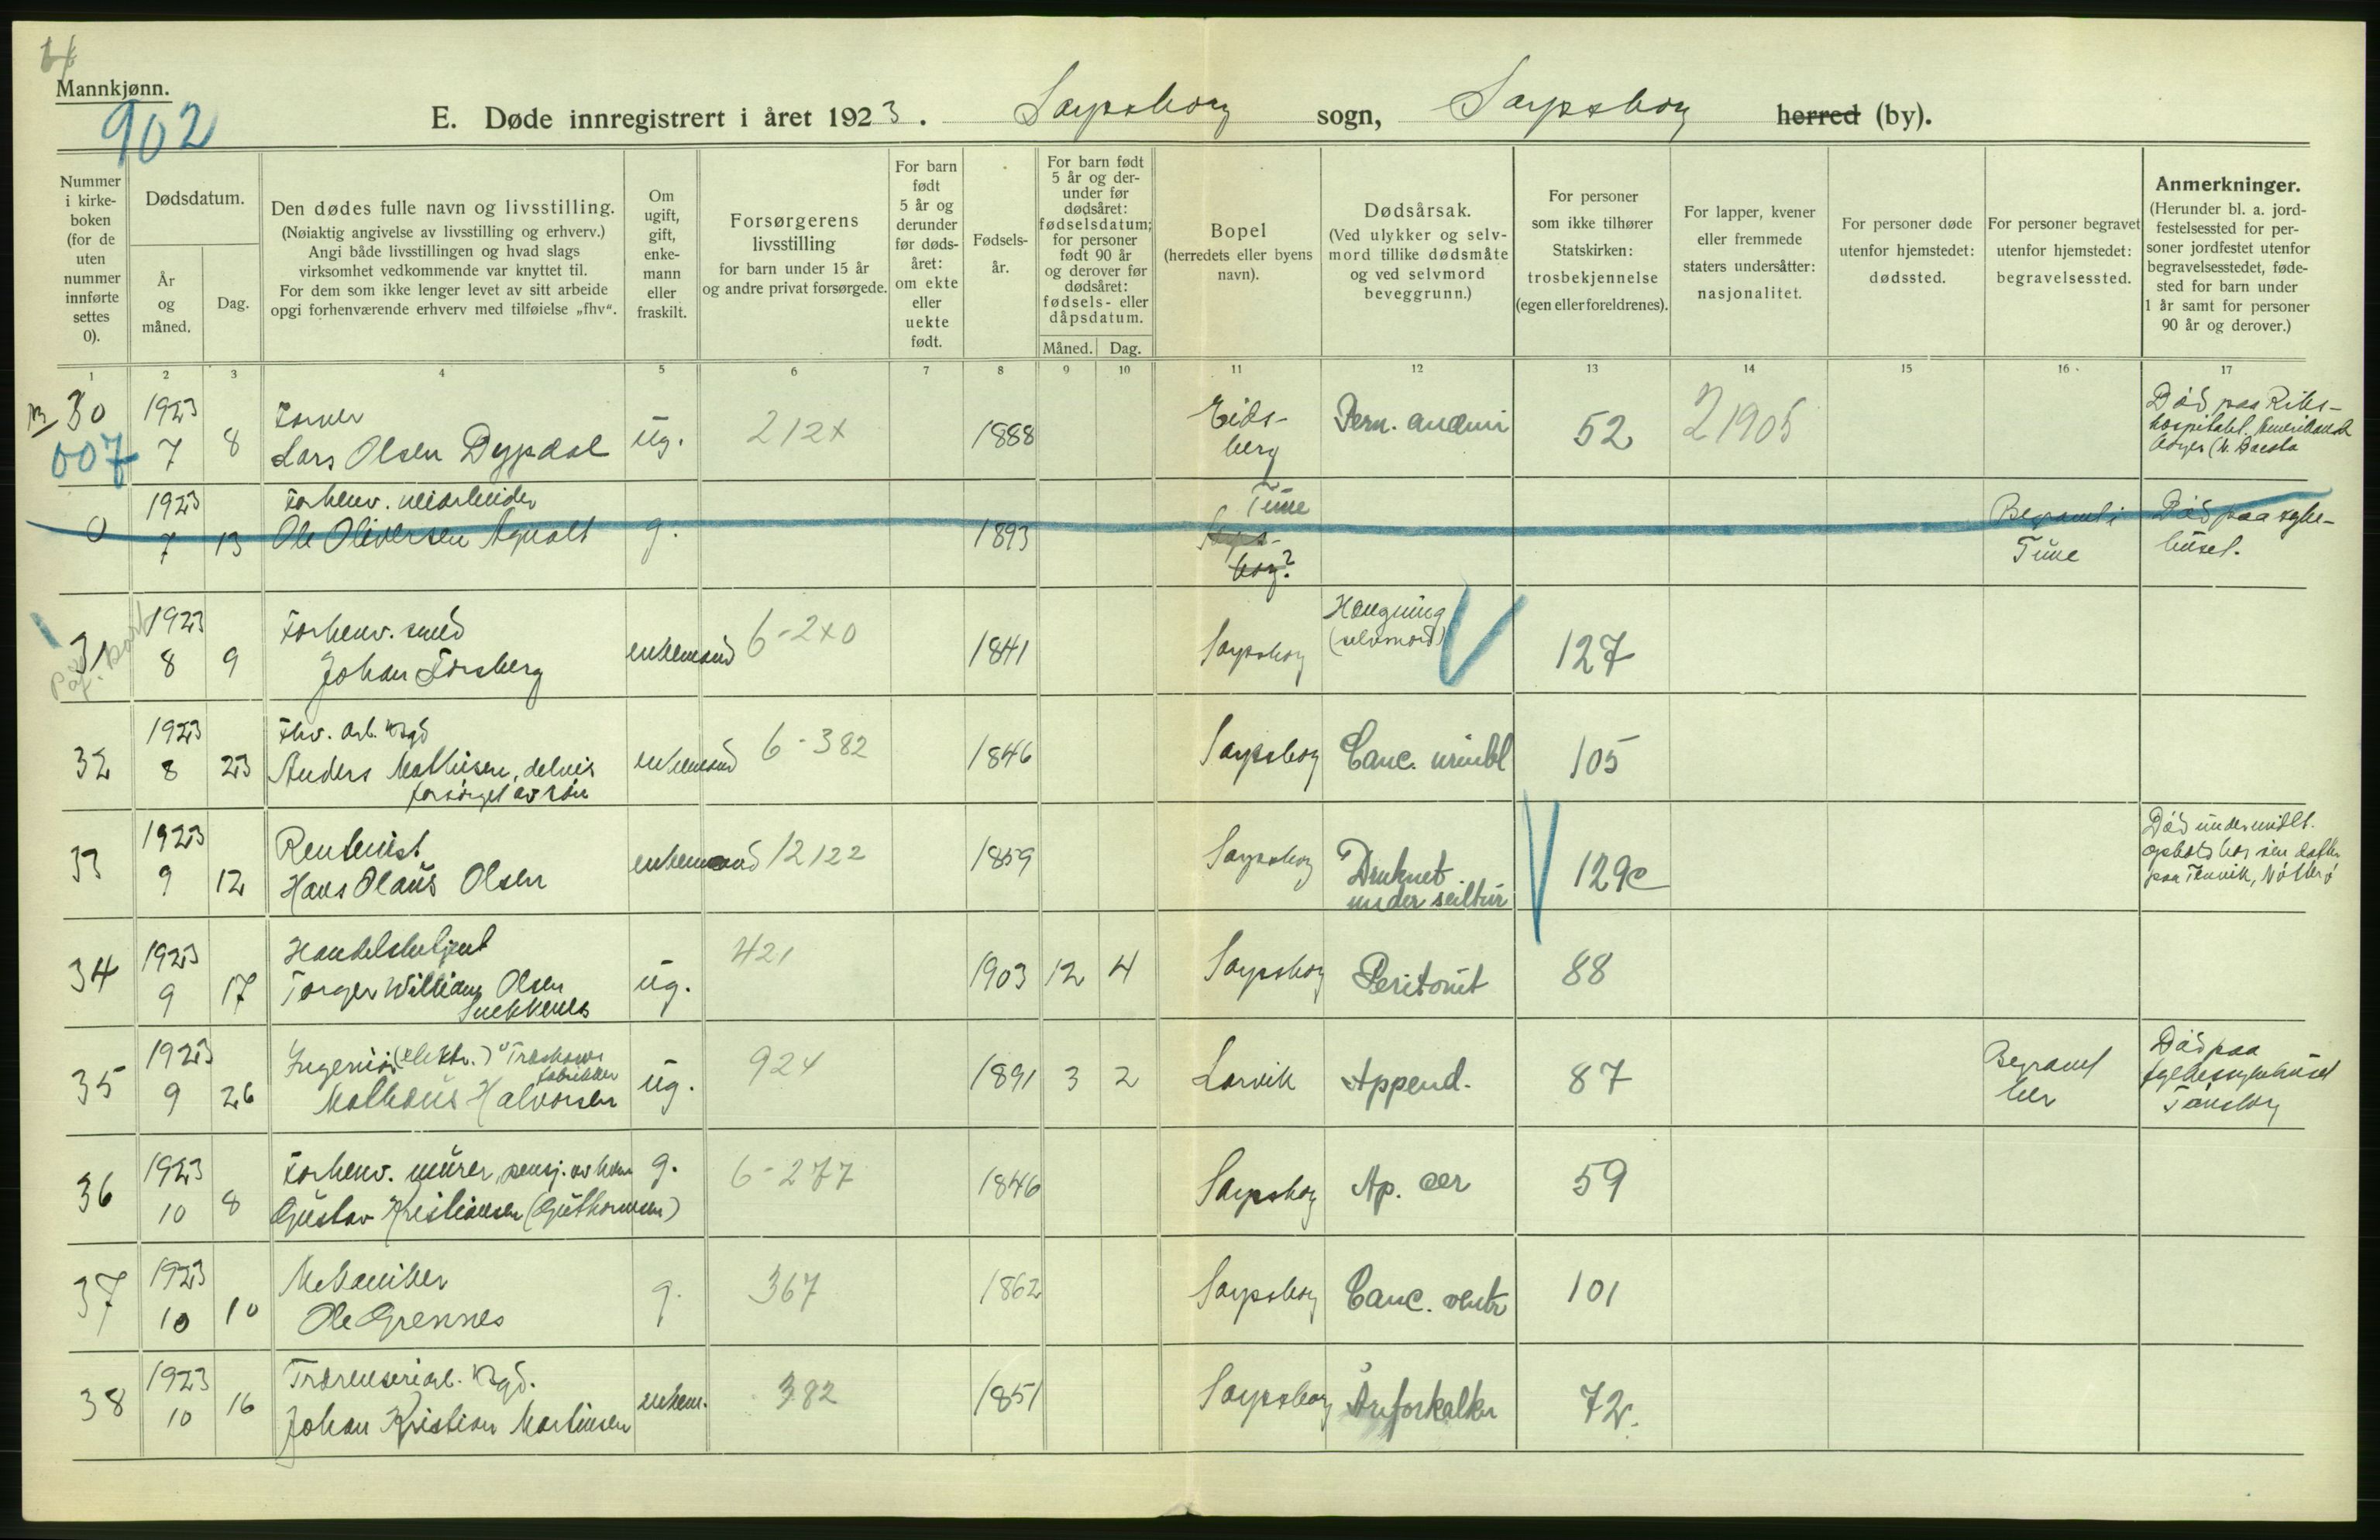 Mannkjønn.
902
E. Døde innregistrert i året 1923. Sarpsborg sogn, Sarpsborg herred (by).
Nummer
i kirke-
boken
(for de
uten
nummer
innførte
settes
0).
Dødsdatum.
År
og
måned.
Dag.
Den dødes fulle navn og livsstilling.
(Nøiaktig angivelse av livsstilling og erhverv.)
Angi både livsstillingen og hvad slags
virksomhet vedkommende var knyttet til.
For dem som ikke lenger levet av sitt arbeide
opgi forhenværende erhverv med tilføielse „fhv“.
Om
ugift,
gift,
enke-
mann
eller
fraskilt.
Forsørgerens
livsstilling
for barn under 15 år
og andre privat forsørgede.
For barn
født
5 år og
derunder
før døds-
året:
om ekte
eller
uekte
født.
Fødsels-
år.
For barn født
5 år og der-
under før
dødsåret:
fødselsdatum;
for personer
født 90 år
og derover før
dødsåret:
fødsels- eller
dåpsdatum.
Måned. Dag.
Bopel
(herredets eller byens
navn).
Dødsårsak.
(Ved ulykker og selv-
mord tillike dødsmåte
og ved selvmord
beveggrunn.)
For personer
som ikke tilhører
Statskirken:
trosbekjennelse
(egen eller foreldrenes).
For lapper, kvener
eller fremmede
staters undersåtter:
nasjonalitet.
For personer døde
utenfor hjemstedet:
dødssted.
For personer begravet
utenfor hjemstedet:
begravelsessted.
Anmerkninger.
(Herunder bl. a. jord-
festelsessted for per-
soner jordfestet utenfor
begravelsesstedet, føde-
sted for barn under
1 år samt for personer
90 år og derover.)
1 2 3 4 5 6 7 8 9 10 11 12 13 14 15 16 17
30 007
1923
7 8
Lars Olsen Dypdal
ug. 212x 1888
Eids-
berg
Pern. anæmi 52 21905
Død paa Riks-
hospitalet.
0
1923
7 13
Forhenv.
Ole Oliversen
g. 1893
Tune
Sarps-
borg?
Begravet i
Tune
Død paa syke-
huset.
31
1923
8 9
Forhenv. smed
Johan Forsberg
enkemand 6-2x0 1841 Sarpsborg
Hængning
(selvmord)
127
32
1923
8 23
Fhv. arb.
Anders Mathisen, delvis
forsørget av søn
enkemand 6-382 1846 Sarpsborg Canc. 105
33
1923
9 12
Rentenist
Hans Olaus Olsen
enkemand 12122 1859 Sarpsborg
Druknet
under seiltur
129c
Død under midlt.
ophold hos sin datter
paa Tenvik, Nøtterø
34
1923
9 17
Handelsbetjent
Torger William Olsen
Snekkenes
ug. 421 1903 12 4 Sarpsborg Peritonit 88
35
1923
9 26
Ingeniør (elektr.)
Mathæus Halvorsen
ug. 924 1891 3 2 Larvik Append. 87
Begravet
her
Død paa
fylkessykehuset
Tønsberg
36
1923
10 8
Forhenv. murer, pensj. av
Gustav Kristiansen (Guthormsen)
g. 6-277 1846 Sarpsborg Ap. cer 59
37
1923
10 10
Mekaniker
Ole Grennes
g. 367 1862 Sarpsborg Canc. ventr 101
38
1923
10 16
Johan Kristian Martinsen
enkem. 382 1851 Sarpsborg Åreforkalkn 72.